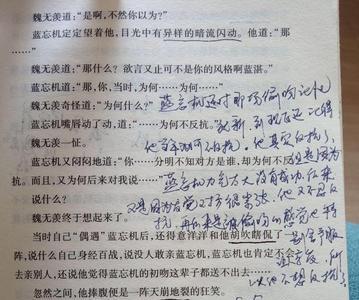 魏无羡道:“是啊,不然你以为?”
蓝忘机定定望着他,目光中有异样的暗流闪动。他道:“那
……”
魏无羡道:“那什么?欲言又止可不是你的风格啊蓝湛。”
蓝忘机道:“那,你,当时,为何……为何……”
魏无羡奇怪道:“为何什么?”
蓝忘机嘴唇动了动,道:“……为何不反抗。”
魏无羡一怔。
蓝忘机又闷闷地道:“你……分明不知对方是谁,却为何不反
抗。而且,又为何后来对我说……”
说?
魏无羡终于想起来了。
当时自己“偶遇”蓝忘机后,还得意洋洋和他胡吹瞎侃了一
阵,说什么自己身经百战,说没人敢亲蓝忘机,蓝忘机也肯定不会
去亲别人,还说他觉得蓝忘机的初吻这辈子都送不出去……
忽然之间,他捧腹便是一阵天崩地裂的狂笑。
蓝忘机还对那场偷吻记忆
犹新,到现在还记得
他当年为何不反抗。他其实反抗了,
只是因为
蓝忘机力气太大没有成功,后来
又是因为